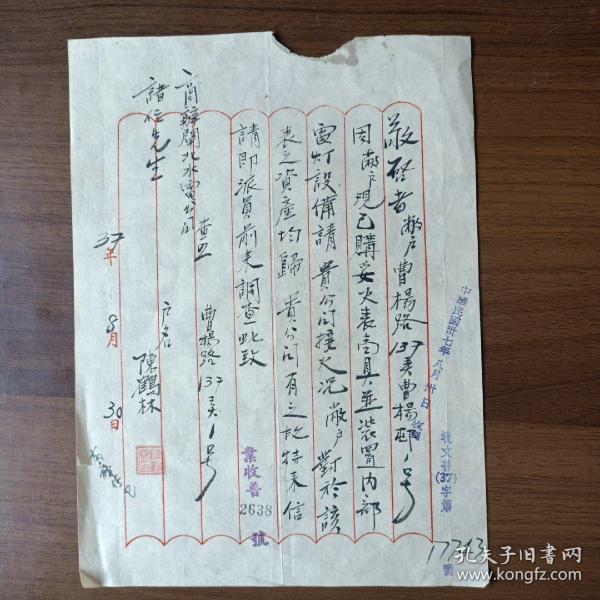 敬啓者敝戶曹楊路137弄曹楊邨1号
因敝戶現已購妥火表壹具並裝置内部
電灯設備請 貴公司接火况敝戶對於該
表之資產均歸 貴公司有之故特來信
請即派員前來調查 此致
曹楊路137弄1号
商辦閘北水電公司 查照
戶名 陳鶴林
諸位先生
37年 8月 30日
中華民國卅七年八月卅日收到
收文
(37)字第
17243
號
業收普
2638
號
孔夫子旧书网
www.kongfz.com